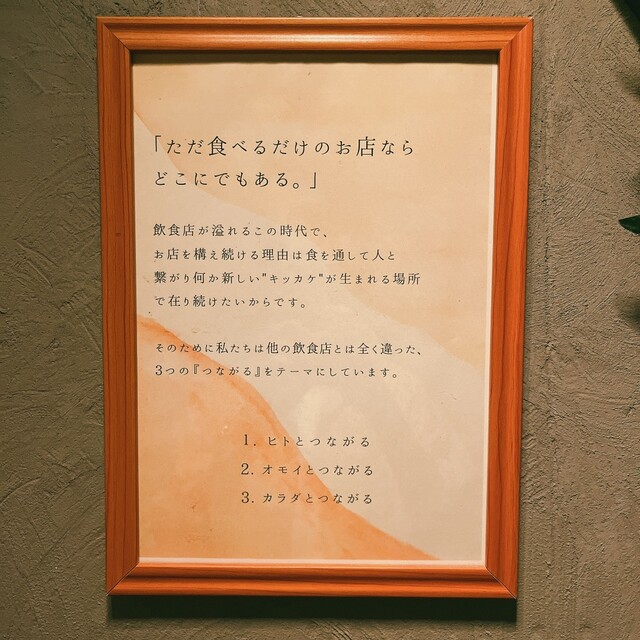 「ただ食べるだけのお店なら
どこにでもある。」
飲食店が溢れるこの時代で、
お店を構え続ける理由は食を通して人と
繋がり何か新しい"キッカケ"が生まれる場所
で在り続けたいからです。
そのために私たちは他の飲食店とは全く違った、
3つの『つながる』をテーマにしています。
1. ヒトとつながる
2. オモイとつながる
3. カラダとつながる